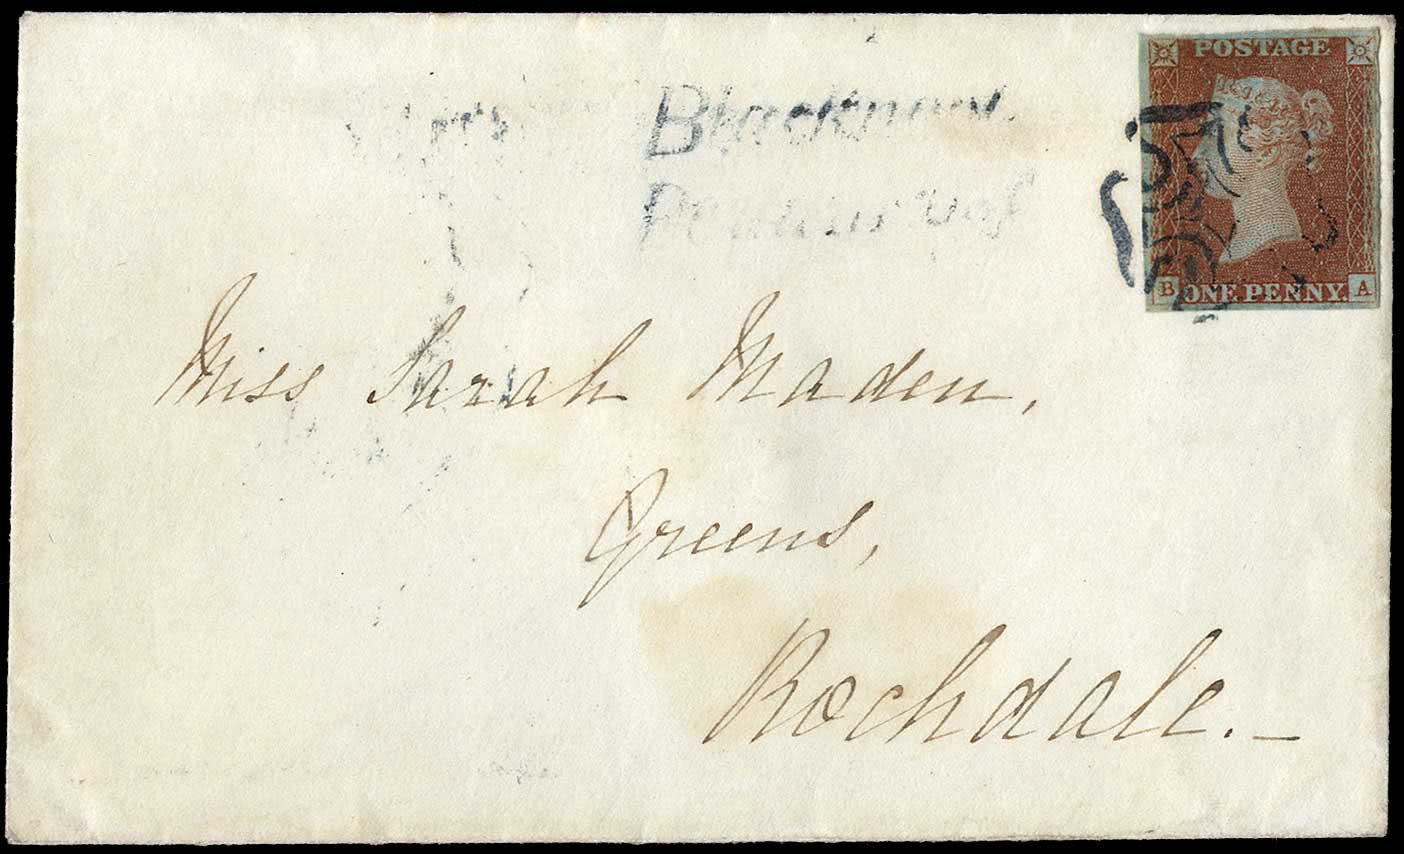 POSTAGE
B ONE PENNY. A
Penny Post
Miss Sarah Maden,
Greens,
Rochdale.—